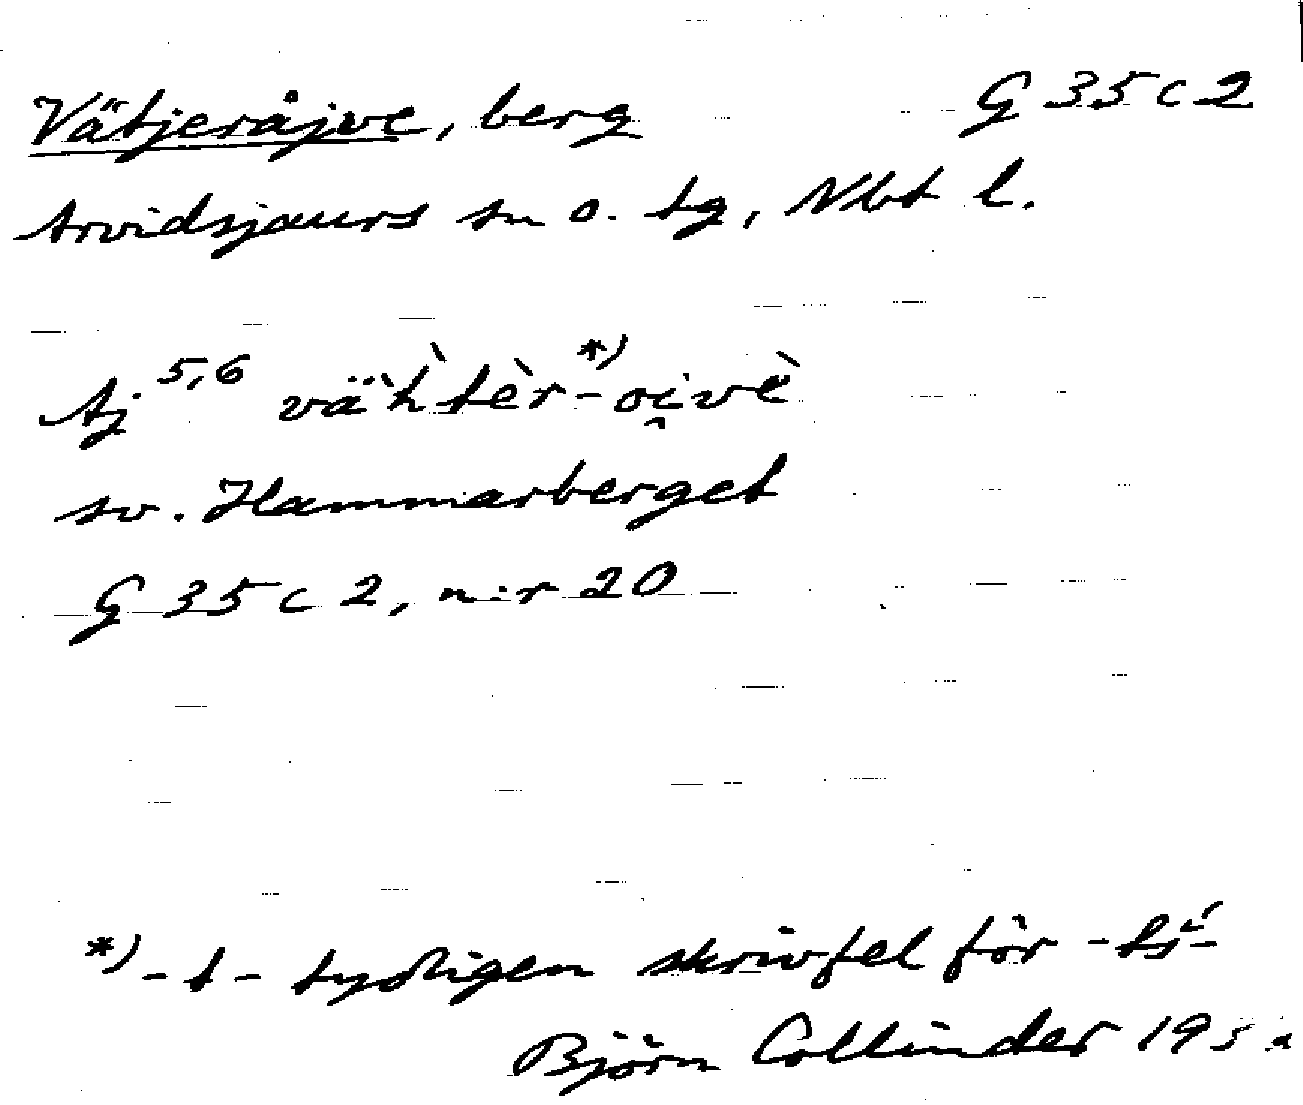 Vätjeråjve, berg G 35 c 2
Arvidsjaurs sn o. tg, Nbt l.
Aj 5,6 vähtèr-*) oi̯vè
sv. Hammarberget
G 35 c 2, n:r 20
*) -t- tydligen skrivfel för -tś-
Björn Collinder